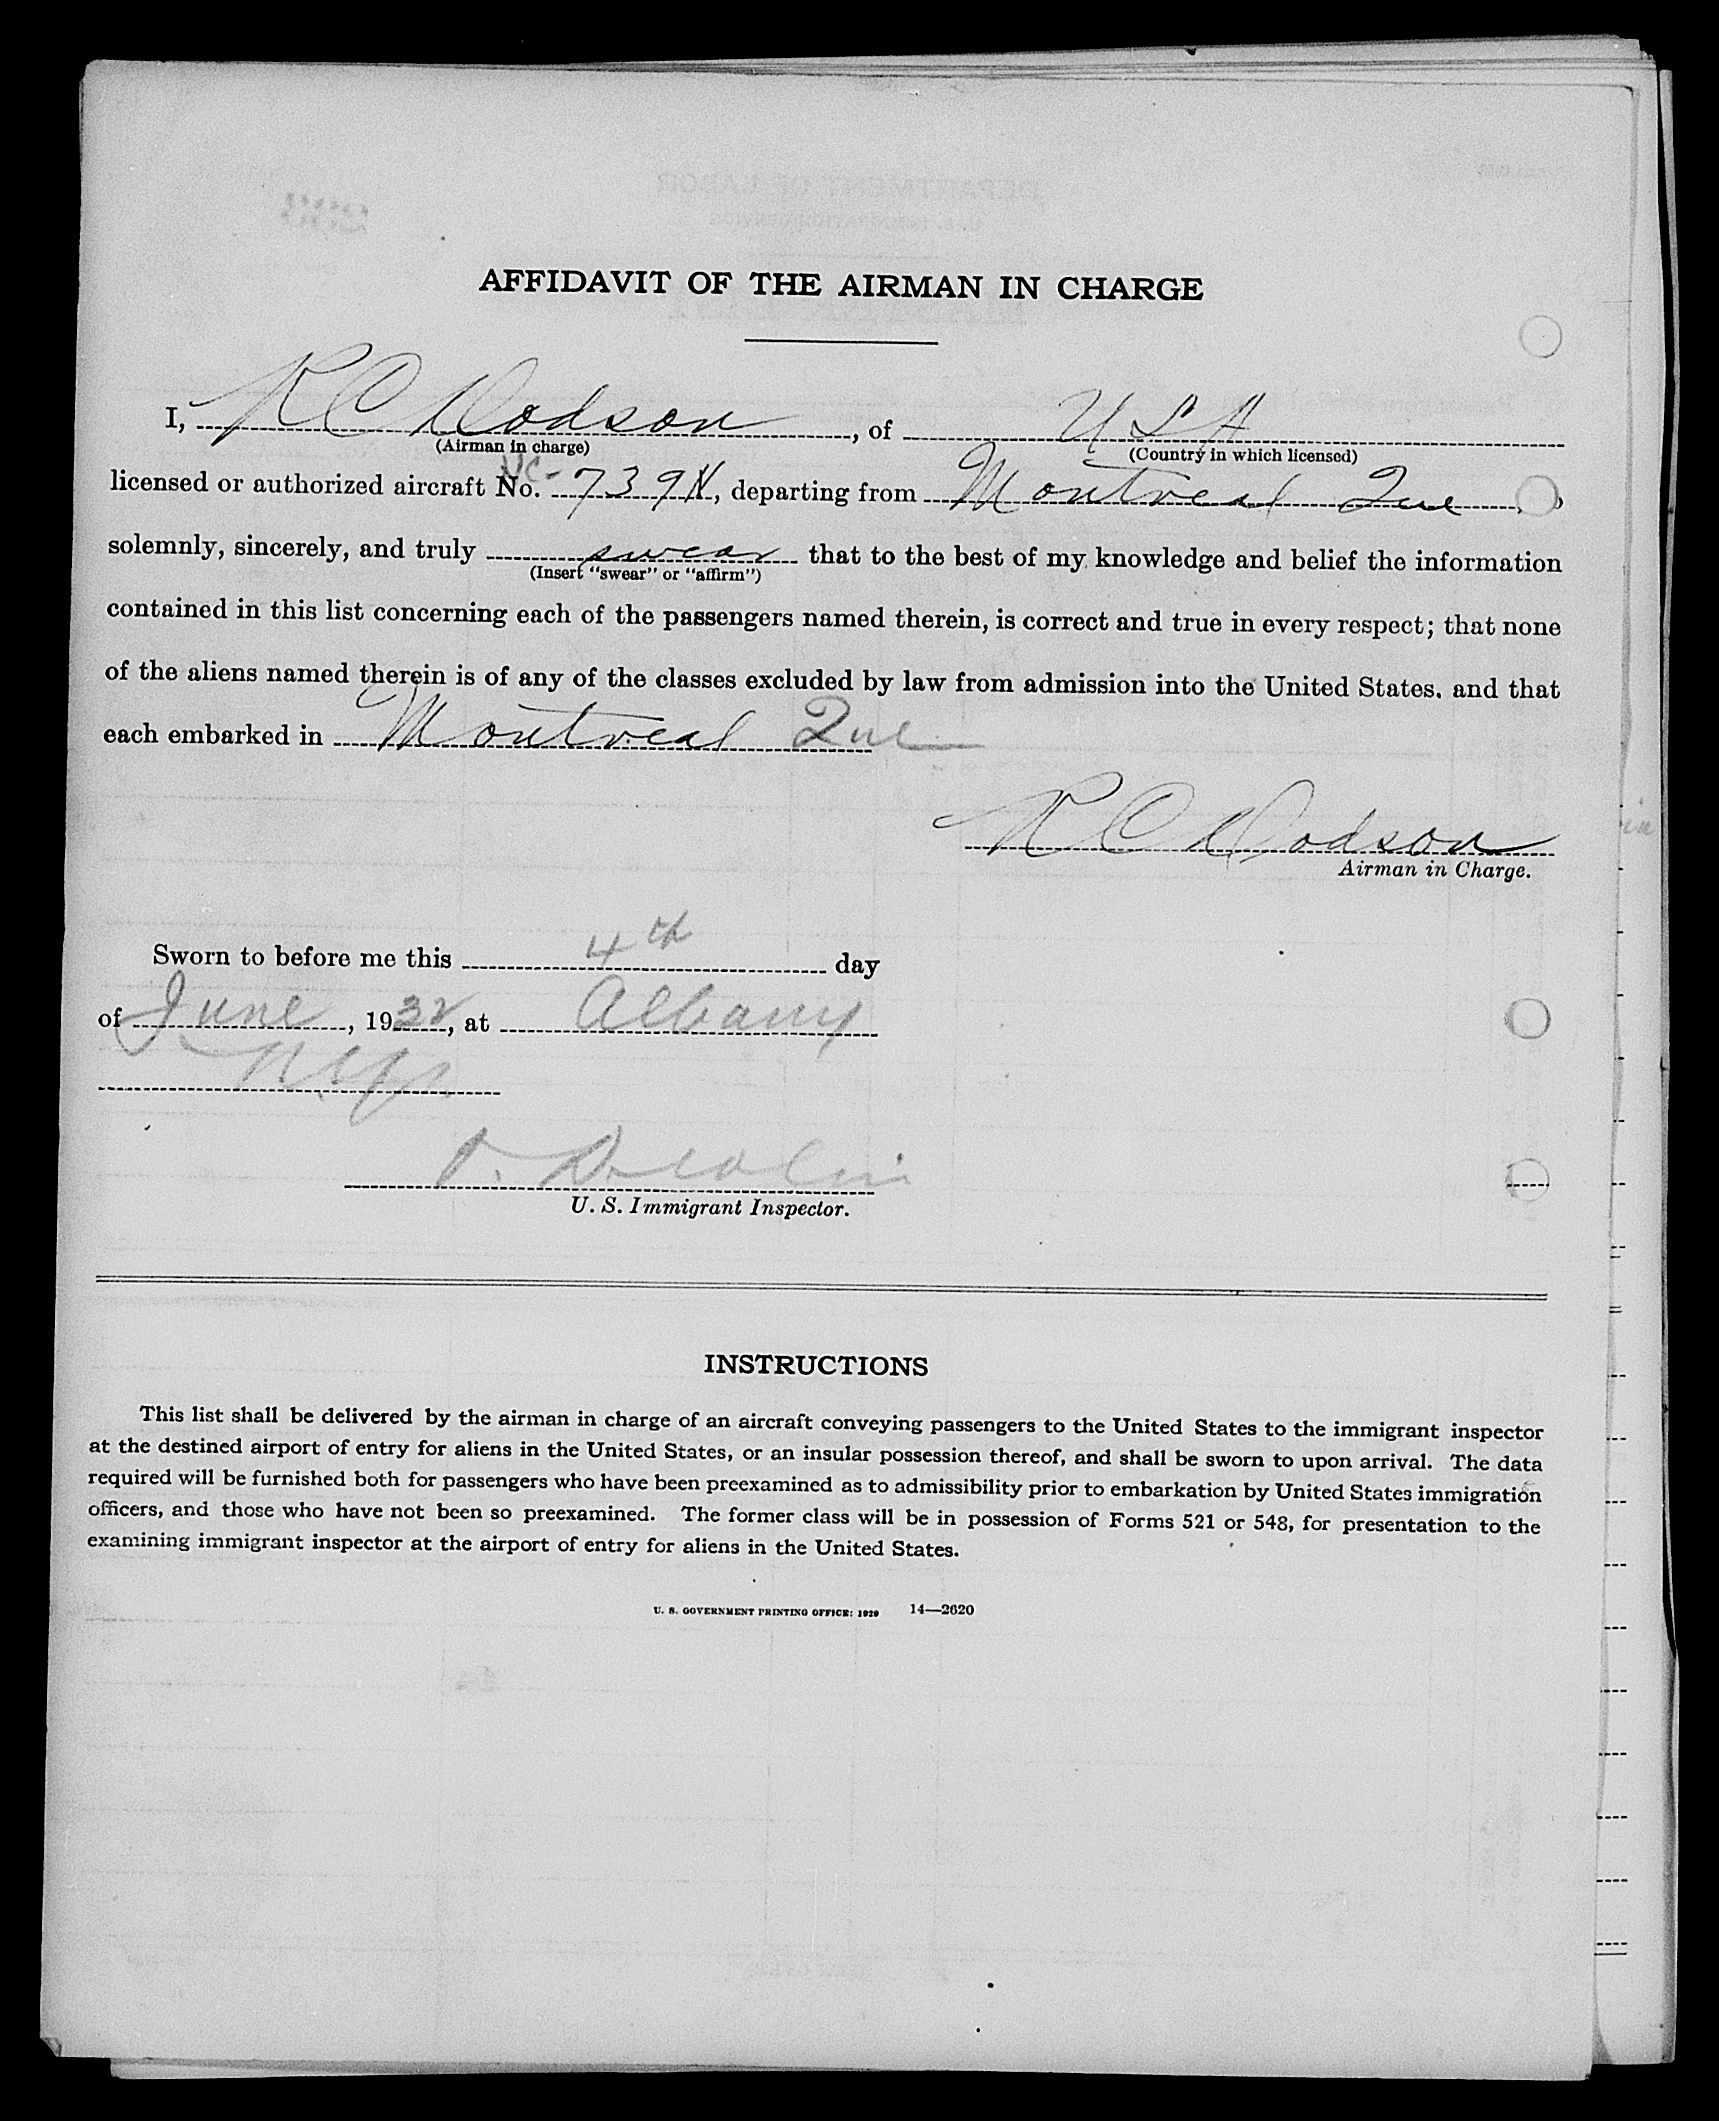 AFFIDAVIT OF THE AIRMAN IN CHARGE
I, R C Dodson, of U S A
(Airman in charge) (Country in which licensed)
licensed or authorized aircraft No. NC-739N, departing from Montreal Que,
solemnly, sincerely, and truly swear that to the best of my knowledge and belief the information
(Insert "swear" or "affirm")
contained in this list concerning each of the passengers named therein, is correct and true in every respect; that none
of the aliens named therein is of any of the classes excluded by law from admission into the United States. and that
each embarked in Montreal Que
R C Dodson
Airman in Charge.
Sworn to before me this 4th day
of June, 1932, at Albany
N.Y.
U. S. Immigrant Inspector.
INSTRUCTIONS
This list shall be delivered by the airman in charge of an aircraft conveying passengers to the United States to the immigrant inspector
at the destined airport of entry for aliens in the United States, or an insular possession thereof, and shall be sworn to upon arrival. The data
required will be furnished both for passengers who have been preexamined as to admissibility prior to embarkation by United States immigration
officers, and those who have not been so preexamined. The former class will be in possession of Forms 521 or 548, for presentation to the
examining immigrant inspector at the airport of entry for aliens in the United States.
U. S. GOVERNMENT PRINTING OFFICE: 1929 14—2620